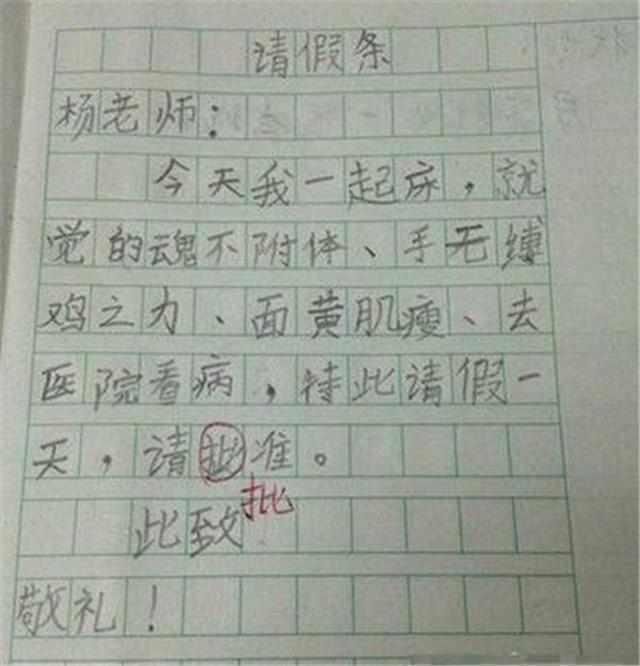 请假条
杨老师：
今天我一起床，就
觉的魂不附体、手无缚
鸡之力、面黄肌瘦、去
医院看病，待此请假一
天，请批准。
批
此致
敬礼！